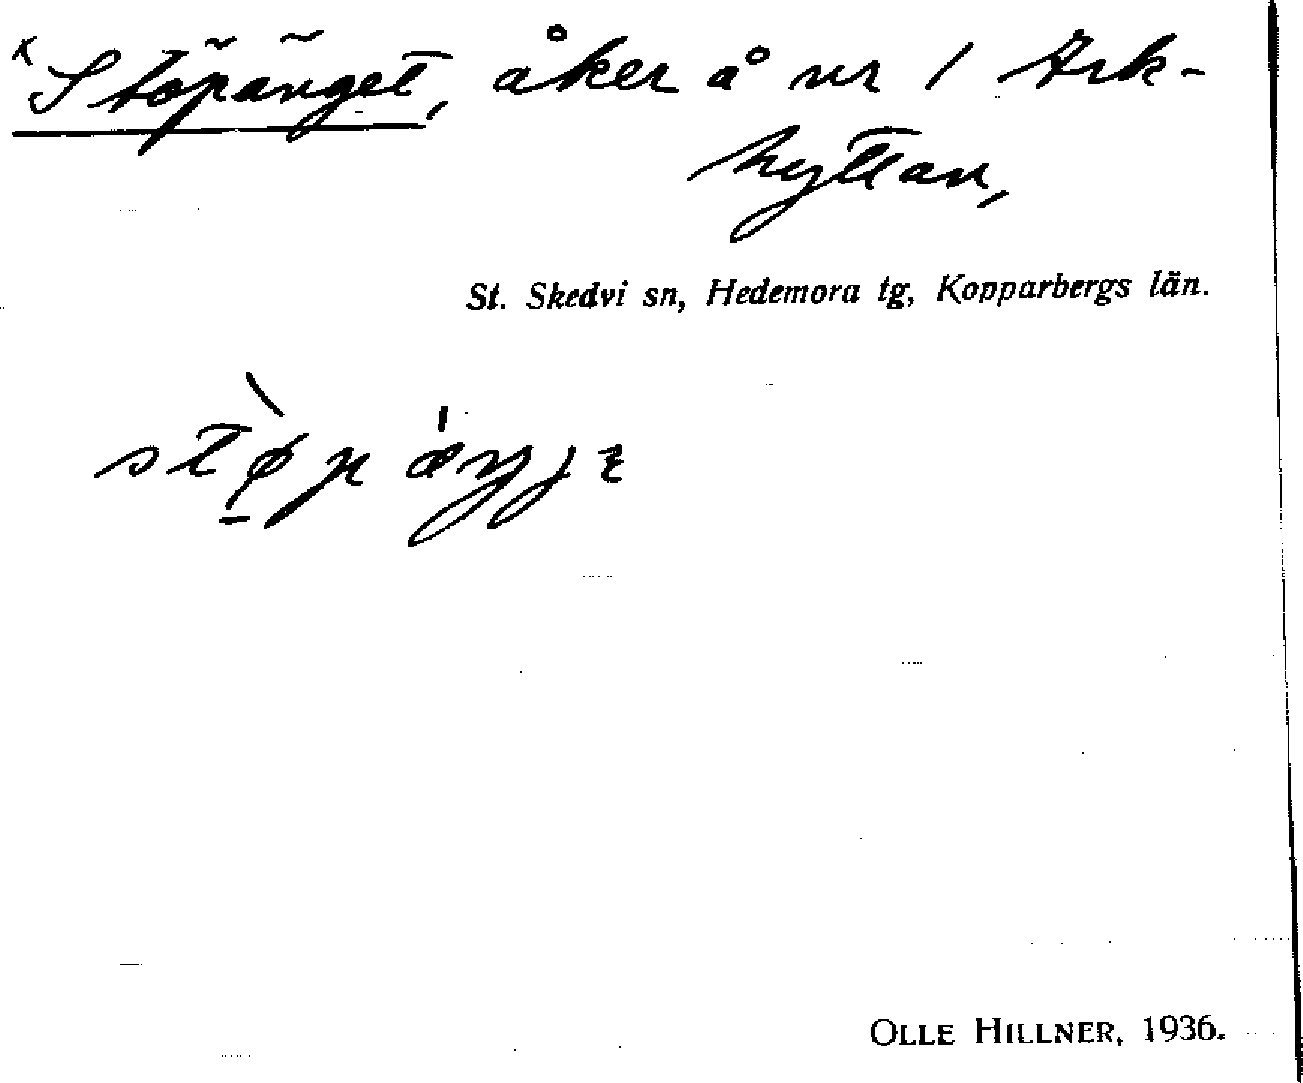 x Stöpänget, åker å nr 1 Ark-
hyttan,
St. Skedvi sn, Hedemora tg, Kopparbergs län.
OLLE HILLNER, 1936.